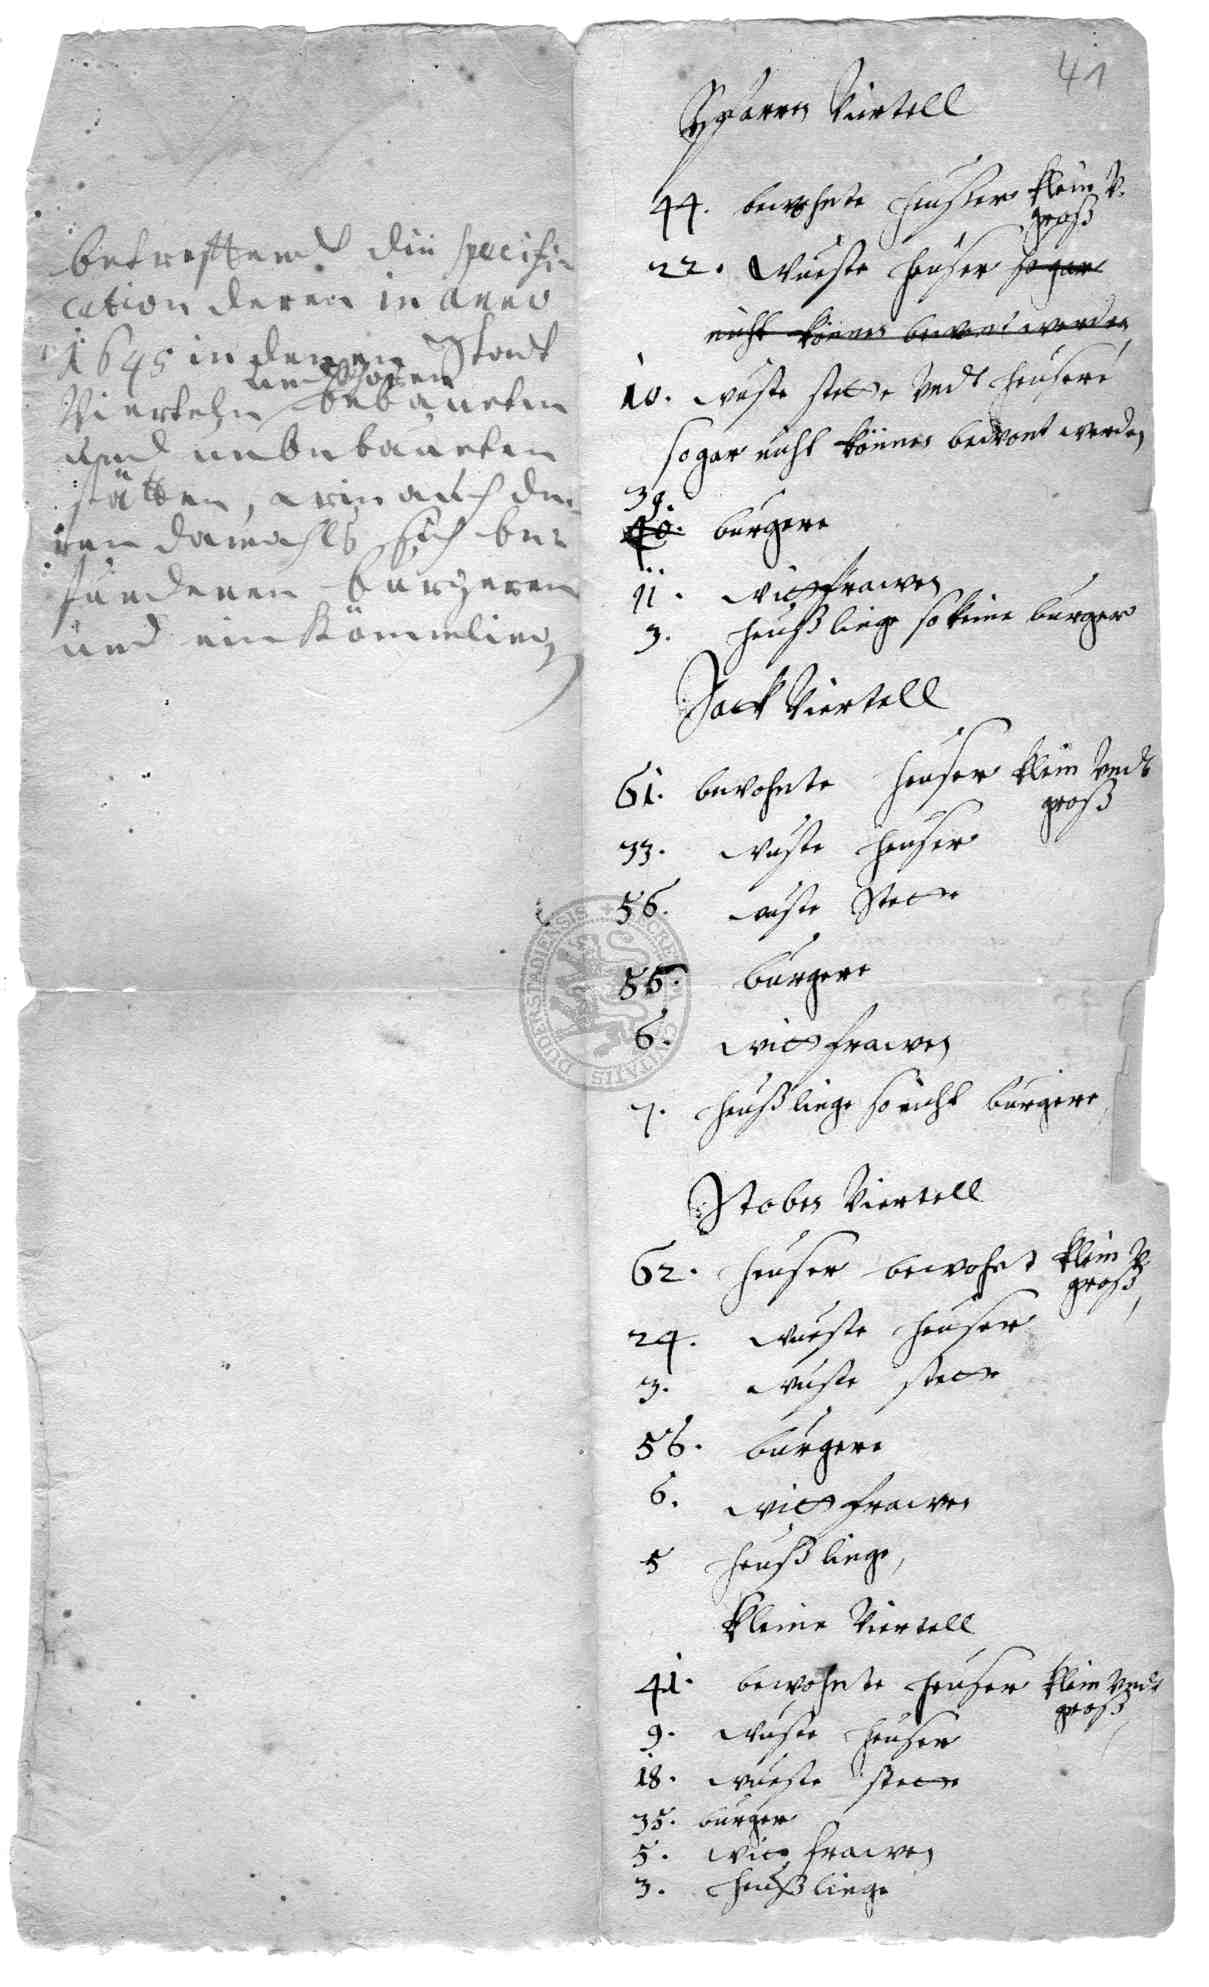 betreffend die specifi-
cation deren in anno
1645 in denen Stadt
Vierteln bebaueten
und unbebaueten
stätten, auch de-
ren damahls sich be-
fundenen burgeren
und einkömmeling
41
Sparren Viertell
44. bewohnte Heußer klein V.
groß
22. Wueste heuser so gar
nicht können bewont werden
10. wuste stette Vndt heusere
so gar nicht können bewont werden
39.
40. burgere
11. wittfrawen
3. heußlinge so keine burger
Sack Viertell
61. bewohnte heuser klein Vndt
groß
33. wuste heuser
56. wuste Stette
55. burgere
6. wittfrawen
7. heußlinge so nicht burgere
Stoben Viertell
62. heuser bewohnt klein V.
groß
24. wueste heuser
3. wuste stette
56. burgere
6. wittfrawen
5 heußlinge,
Kleine Viertell
41. bewohnte heuser klein Vndt
groß
9. wuste heuser
18. wueste stette
35. burger
5. witt frawen
3. heußlinge
DUDERSTADIENSIS